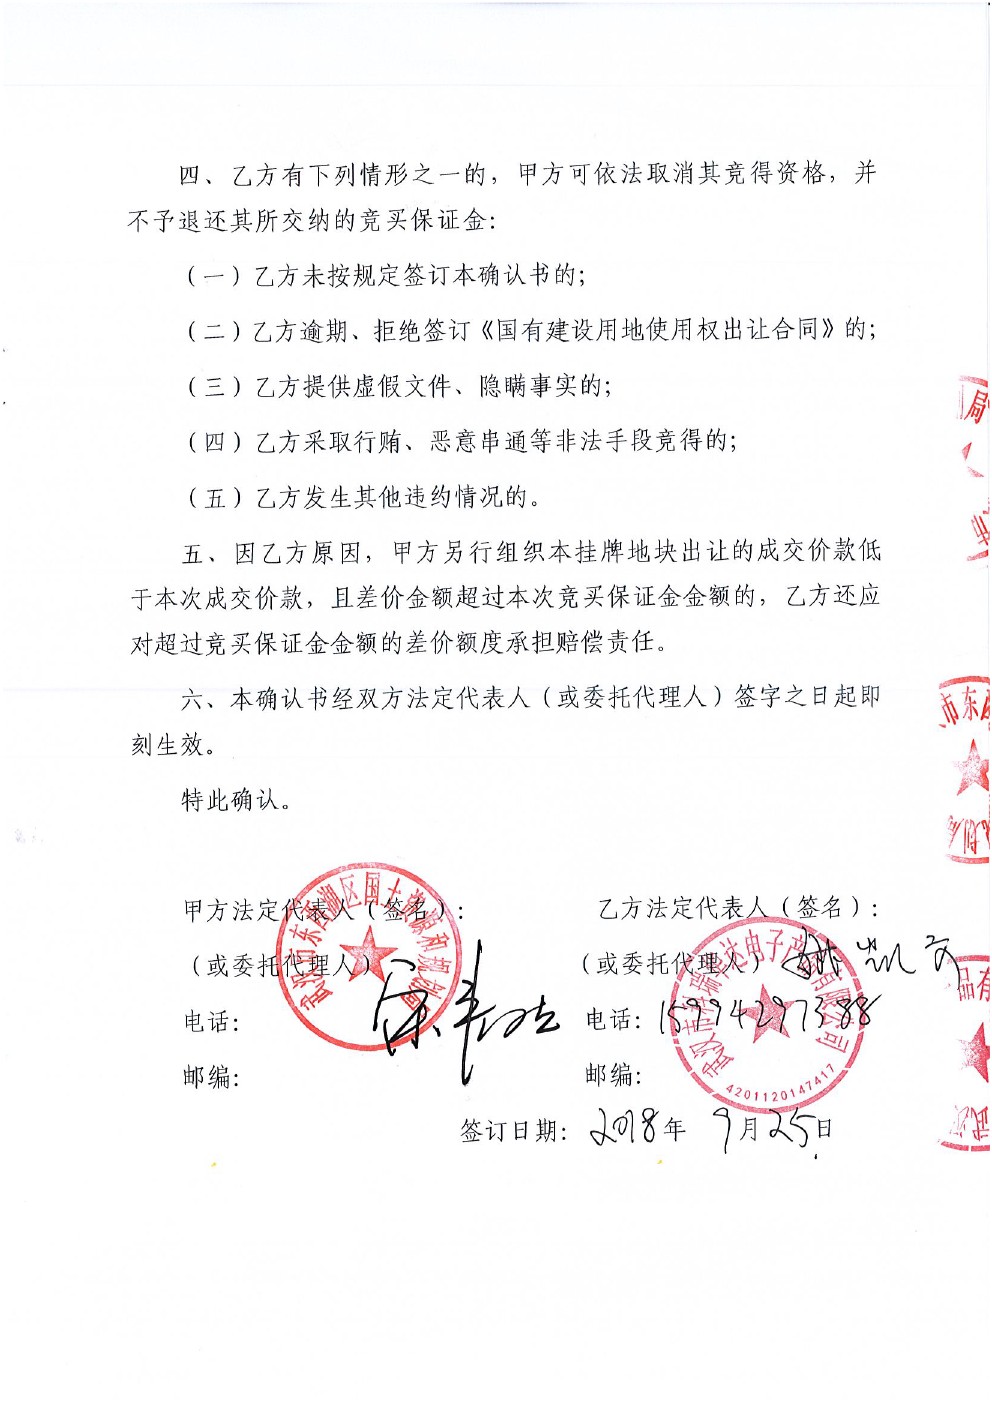 四、乙方有下列情形之一的，甲方可依法取消其竞得资格，并
不予退还其所交纳的竞买保证金：
（一）乙方未按规定签订本确认书的；
（二）乙方逾期、拒绝签订《国有建设用地使用权出让合同》的；
（三）乙方提供虚假文件、隐瞒事实的；
（四）乙方采取行贿、恶意串通等非法手段竞得的；
（五）乙方发生其他违约情况的。
五、因乙方原因，甲方另行组织本挂牌地块出让的成交价款低
于本次成交价款，且差价金额超过本次竞买保证金金额的，乙方还应
对超过竞买保证金金额的差价额度承担赔偿责任。
六、本确认书经双方法定代表人（或委托代理人）签字之日起即
刻生效。
特此确认。
甲方法定代表人（签名）： 乙方法定代表人（签名）：
（或委托代理人） （或委托代理人）
电话： 电话：15994297388
邮编： 邮编：
签订日期：2018年 9月25日
武汉市东西湖区国土资源和规划局
电子产品有限公司
4201120147417
局
市东
划局
品有
武汉